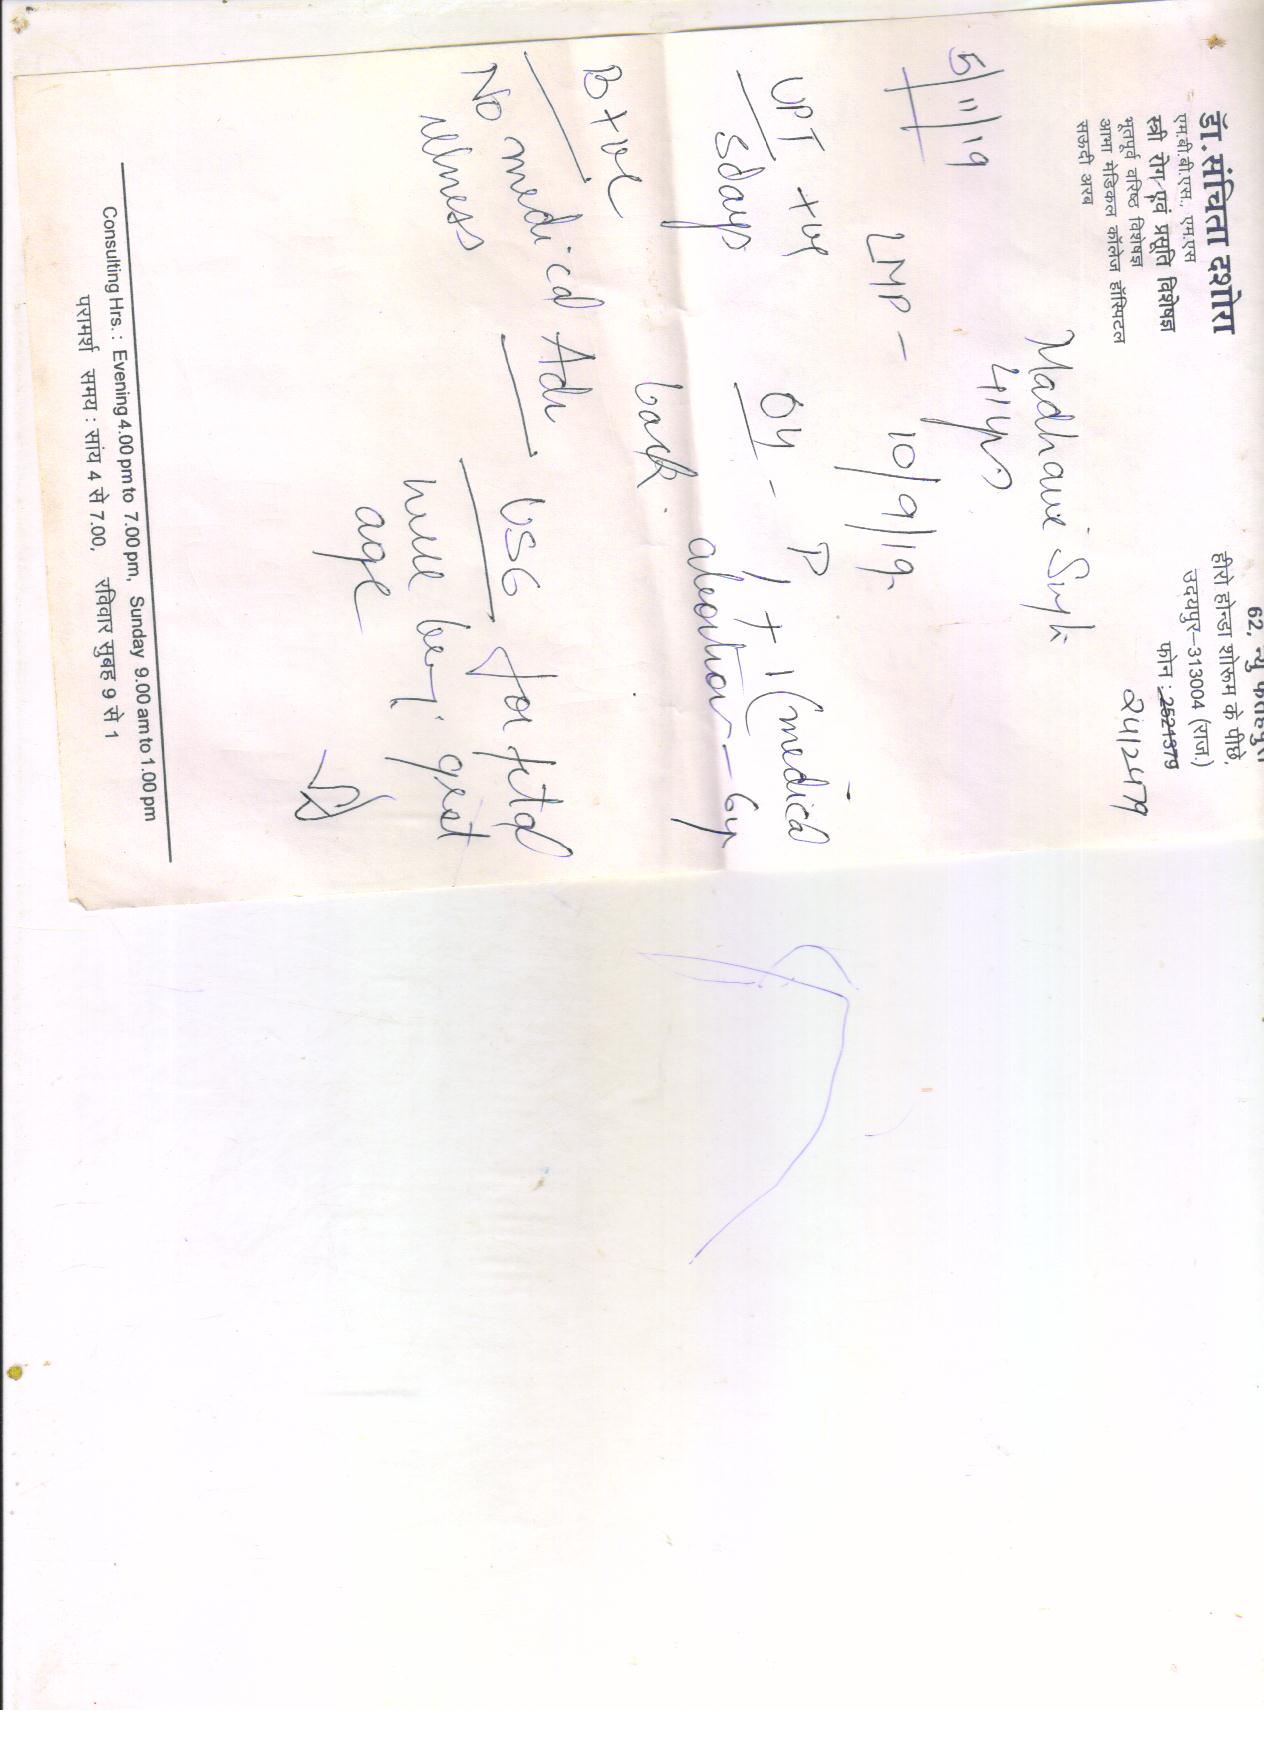 डॉ. संचिता दशोरा
एम.बी.बी.एस., एम.एस
स्त्री रोग एवं प्रसुति विशेषज्ञ
भूतपूर्व वरिष्ठ विशेषज्ञ
आभा मेडिकल कॉलेज हॉस्पिटल
सऊदी अरब
62, न्यू फतहपुरा
हीरो होन्डा शोरूम के पीछे,
उदयपुर–313004 (राज.)
फोन : 2521379
2412479
Madhavi Singh
41 yrs
5/11/19
LMP – 10/9/19
UPT +ve
5 days
Oy – P 1 + 1 (medical
abortion – 6 yr
back.
B +ve
No medical
illness
Adv
USG for fetal
gest
age
Consulting Hrs. : Evening 4.00 pm to 7.00 pm, Sunday 9.00 am to 1.00 pm
परामर्श समय : सांय 4 से 7.00, रविवार सुबह 9 से 1